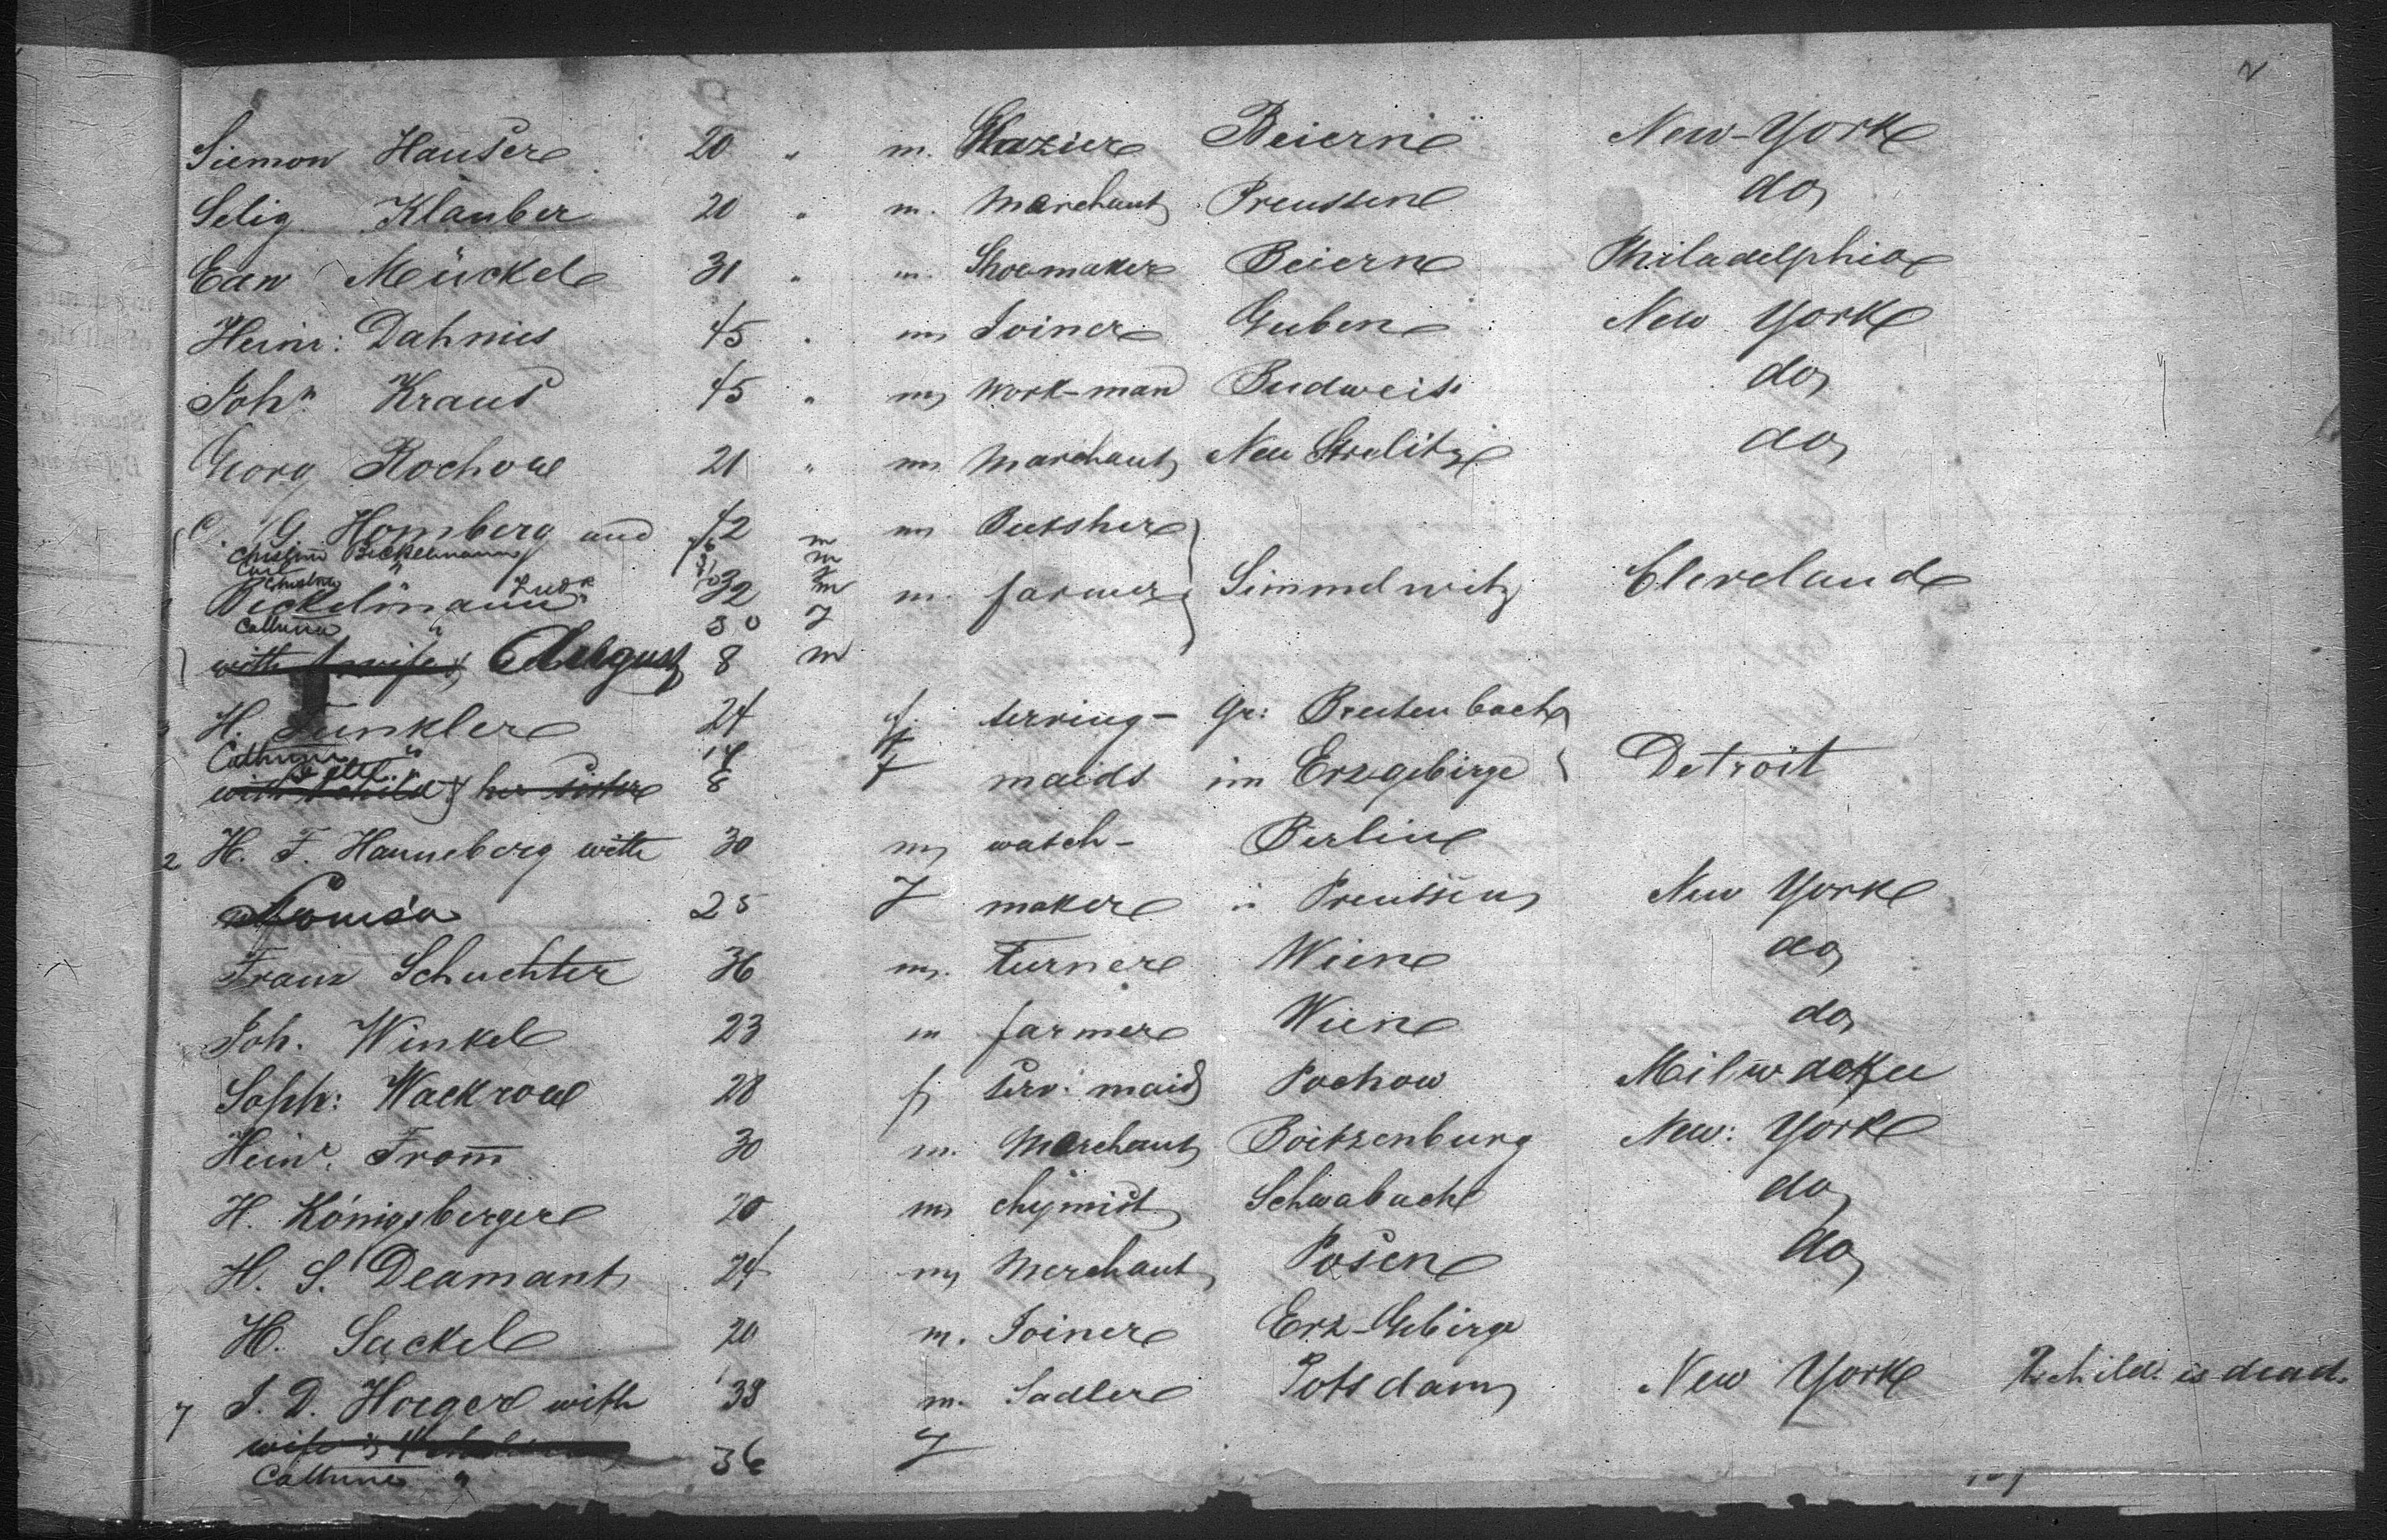 2
Siemon Hauser 20 " m. Glazier Beiern New-York
Selig Klauber 20 " m. Marchant Preussen do
Edw Mückel 31 " m. Shoemaker Beiern Philadelphia
Heinr: Dahmes 45 " m Joiner Guben New York
John Kraus 45 " m Work-man Budweis do
Georg Rochow 21 " m Marchant Neu Strelitz do
C. G. Homberg and 42 m m Butsher
Bickelmann
Carl "
Christine
Bickelmann Ludr 32 m m. farmer Simmelwitz Cleveland
Cathrina " 30 f
with wife August 8 m
3 H. Funkler 24 f. serving- Gr: Breitenbach
Cathrina " 14 f
with 1 child & her sister 8 f maids im Erzgebirge Detroit
2 H. F. Hanneberg with 30 m watch- Berlin
Louisa 25 f maker i Preussen New York
Franz Schuchter 36 m. Turner Wien do
Joh. Winkel 23 m farmer Wien do
Soph: Wackrow 28 f serv: maid Pochow Milwaukee
Heinr. From̅ 30 m. Marchant Boitzenburg New: York
H. Königsberger 20 m chymist Schwabach do
H. S. Deamant 24 m Merchant Posen do
H. Suckel 20 m. Joiner Erz-Gebirge
7 J. D. Hoeger with 38 m. Sadler Potsdam New York child is dead.
wife & 36 f
Cathrine "